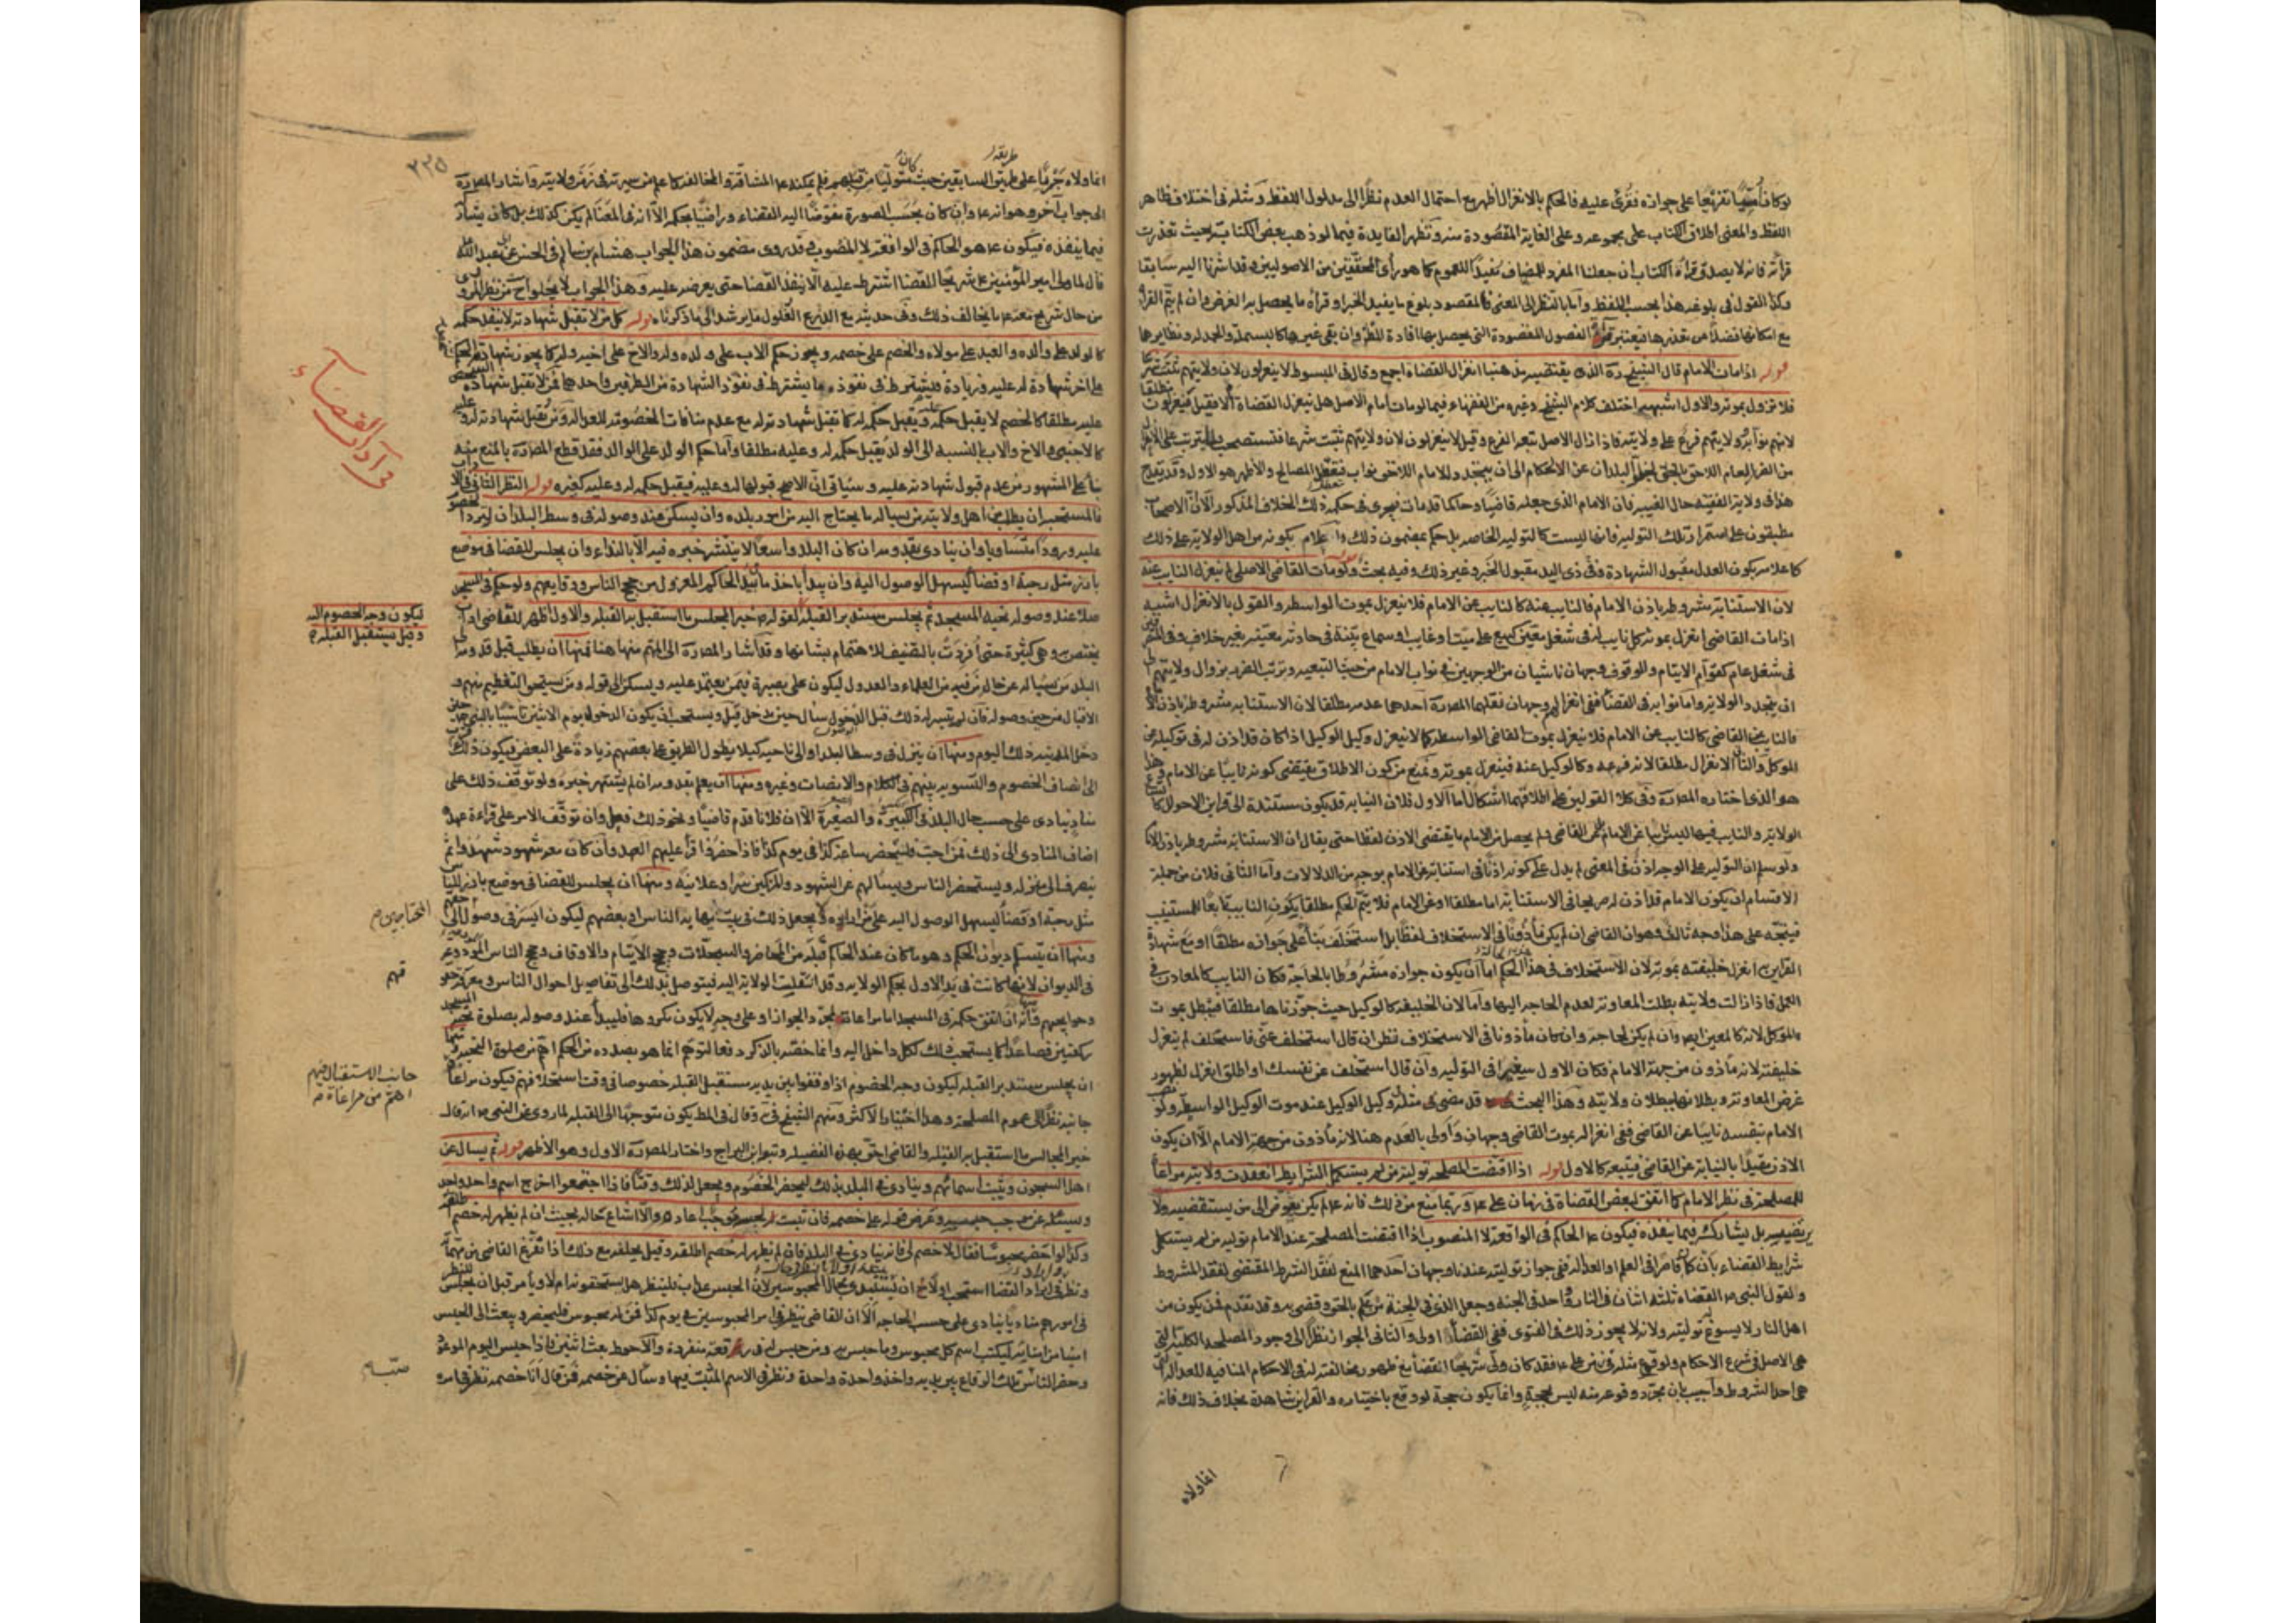 لو كان أميّا تفريعا على جوازه فقرئ عليه فالحكم بالانعزال أظهر مع احتمال العدم نظرا الى مدلول اللفظ ومثله في اختلاف ظاهر
اللفظ والمعنى اطلاق الكتاب على مجموعه وعلى الغاية المقصودة منه وتظهر الفايدة فيما لو ذهب بعض الكتاب بحيث تعذرت
قرائته فانه لا يصدق قراءة الكتاب ان جعلنا المفرد المضاف مفيدا للعموم كما هو رأى المحققين من الاصوليين وقد اشرنا اليه سابقا
وكذا القول في بلوغه هذا بحسب اللفظ واما بالنظر الى المعنى فالمقصود بلوغ ما يفيد الخبر او قراءة ما يحصل به الغرض وان لم يتم القراءة
مع امكانها فضلا من تعذرها فيعتبر قراءة الفصول المقصودة التي يحصل بها افادة النظر وان بقي غيرها كالبسملة والحمدلة ونظايرها
قوله اذا مات الامام قال الشيخ ره الذي يقتضيه مذهبنا انعزال القضاة اجمع وقال في المبسوط لا ينعزلون لان ولايتهم ثبتت شرعا
فلا تزول بموته والاول اشبه اختلف كلام الشيخ وغيره من الفقهاء فيما لو مات امام الاصل هل ينعزل القضاة ام لا فقيل ينعزلون مطلقا
لانهم نوابه وولايتهم فرع على ولايته فاذا زال الاصل تبعه الفرع وقيل لا ينعزلون لان ولايتهم ثبتت شرعا فتستصحب ولما يترتب على الانعزال
من الضرر العام اللاحق بالخلق بخلو البلدان عن الحكام الى ان يتجدد للامام اللاحق نواب فتعطل المصالح والأظهر هو الاول وقد يقدح
هذا في ولاية الفقيه حال الغيبة فان الامام الذي جعله قاضيا وحاكما قد مات فيجري في حكمه ذلك الخلاف المذكور الا ان الاصحاب
مطبقون على استمرار تلك التولية فانها ليست كالتولية الخاصة بل حكم بمضمون ذلك واعلام بكونه من اهل الولاية على ذلك
كاعلامه بكون العدل مقبول الشهادة وفي ذي اليد مقبول الخبر وغير ذلك وفيه بحث قوله ولو مات القاضي الاصلي لم ينعزل النايب عنه
لان الاستنابة مشروطة باذن الامام فالنايب عنه كالنايب عن الامام فلا ينعزل بموت الواسطة والقول بالانعزال اشبه
اذا مات القاضي انعزل بموته كل نايب له في شغل معين كبيع على ميت او غايب او سماع بينة في حادثة معينة بغير خلاف وفي المنصوبين
في شغل عام كقوّام الايتام والوقوف وجهان ناشيان من الوجهين في نواب الامام من حيث التبعية وترتب الضرر بزوال ولايتهم الى
ان يتجدد الولاية واما نوابه في القضاء ففي انعزالهم وجهان نقلهما المصره احدهما عدمه مطلقا لان الاستنابة مشروطة باذن الامام
فالنايب عن القاضي كالنايب عن الامام فلا ينعزل بموت القاضي الواسطة كما لا ينعزل وكيل الوكيل اذا كان قد اذن له في توكيله عن
الموكل والثاني الانعزال مطلقا لانه فرعه وكالوكيل عنه فينعزل بموته ونمنع من كون الاطلاق يقتضي كونه نايبا عن الامام وهذا
هو الذي اختاره المصره وفي كلا القولين على اطلاقهما اشكال اما الاول فلان النيابة قد يكون مستندة الى قراين الاحوال
الولاية والنايب فيها ليس نايبا عن الامام بل عن القاضي ولم يحصل من الامام ما يقتضي الاذن لفظا حتى يقال ان الاستنابة مشروطة باذن الامام
ولو سلم ان التولية على الوجه اذن في المعنى لم يدل على كونه اذنا في استنابة عن الامام بوجه من الدلالات واما الثاني فلان من جملة
الاقسام ان يكون الامام قد اذن له صريحا في الاستنابة اما مطلقا او عن الامام فلا يتم الحكم مطلقا بكون النايب تابعا للمستنيب
فيتجه على هذا وجه ثالث وهو ان القاضي ان لم يكن مأذونا في الاستخلاف لفظا بل استخلف بناء على جوازه مطلقا او مع شهادة
القراين به انعزل خليفته بموته لان الاستخلاف في هذا الحكم اما ان يكون جوازه مشروطا بالحاجة فكان النايب كالمعاون في
العمل فاذا زالت ولايته بطلت المعاونة لعدم الحاجة اليها واما لان الخليفة كالوكيل حيث جوزناها مطلقا فيبطل بموت
الموكل لانه كالمعين له وان لم يكن لحاجة وان كان مأذونا في الاستخلاف نظر ان قال استخلف عني فاستخلف لم ينعزل
خليفته لانه مأذون من جهة الامام فكان الاول سفيرا في التولية وان قال استخلف عن نفسك او اطلق انعزل لظهور
غرض المعاونة وبطلانها ببطلان ولايته وهذا البحث قد مضى في مثله في وكيل الوكيل عند موت الوكيل الواسطة ولو نصب
الامام بنفسه نايبا عن القاضي ففي انعزاله بموت القاضي وجهان واولى بالعدم هنا لانه مأذون من جهة الامام الا ان يكون
الاذن مقيدا بالنيابة عن القاضي فيتبعه كالاول قوله اذا اقتضت المصلحة تولية من لم يستكمل الشرايط انعقدت ولايته مراعاة
للمصلحة في نظر الامام كما اتفق لبعض القضاة في زمان علي ع وربما منع من ذلك فانه ع لم يكن يفوض الى من يستقضيه ولا
يرتضيه بل يشاركه فيما ينفذه فيكون ع الحاكم في الواقعة لا المنصوب اذا اقتضت المصلحة عند الامام تولية من لم يستكمل
شرايط القضاء بان كان قاصرا في العلم او العدالة ففي جواز توليته عندنا وجهان احدهما المنع لفقد الشرط المقتضي لفقد المشروط
ولقول النبي ص القضاة ثلثة اثنان في النار وواحد في الجنة وجعل الذي في الجنة من علم بالحق وقضى به وقد تقدم فمن يكون من
اهل النار لا يسوغ توليته ولانه لا يجوز ذلك في الفتوى ففي القضاء اولى والثاني الجواز نظرا الى وجود المصلحة الكلية التي
هي الاصل في شرع الاحكام ولوقوع مثله في زمن علي ع فقد كان ولى شريحا القضاء مع ظهور مخالفته له في الاحكام المنافية للعدالة التي
هي احد الشروط واجيب بان مجرد وقوعه منه ليس بحجة وانما يكون حجة لو وقع باختياره والقراين شاهدة بخلاف ذلك فانه
انما ولاه
٣٣٥
طريقة
كان
انما ولاه جريا على طريق السابقين حيث متوليا من قبلهم فلم يمكنه ع المشاقة والمخالفة كما علم من سيرته في زمن ولايته واشار المصره
الى جواب آخر وهو انه ع وان كان بحسب الصورة مفوضا اليه القضاء وراضيا بحكمه الا انه في المعنى لم يكن كذلك بل كان يشاركه
فيما ينفذه فيكون ع هو الحاكم في الواقعة لا المنصوب وقد روى مضمون هذا الجواب هشام بن سالم في الحسن عن ابي عبد الله ع
قال لما ولى امير المؤمنين ع شريحا القضاء اشترط عليه الا ينفذ القضاء حتى يعرضه عليه وهذا الجواب لا يخلو اح من نظر المروي
من حال شريح معه ع ما يخالف ذلك وفي حديثه مع الدرع الغلول ما يرشد الى ما ذكرناه قوله كل من لا تقبل شهادته لا ينفذ حكمه
كالولد على والده والعبد على مولاه والخصم على خصمه ويجوز حكم الاب على ولده وله والاخ على اخيه وله كما يجوز شهادته الحكم
على اخر شهادة له عليه وزيادة فيشترط في نفوذه ما يشترط في نفوذ الشهادة من الطرفين واحدهما فمن لا تقبل شهادته
عليه مطلقا كالخصم لا يقبل حكمه ويقبل حكمه له كما تقبل شهادته له مع عدم منافات الخصومة للعدالة ومن تقبل شهادته له وعليه
كالاجنبي والاخ والاب بالنسبة الى الولد يقبل حكمه له وعليه مطلقا واما حكم الولد على الوالد فقد قطع المصره بالمنع منه
بناء على المشهور من عدم قبول شهادته عليه وسياتي ان الاصح قبولها له وعليه فيقبل حكمه له وعليه كغيره قوله النظر الثاني في الاداب
فالمستحب ان يطلب من اهل ولايته من يسأله ما يحتاج اليه من امور بلده وان يسكن عند وصوله في وسط البلد ان لترد الخصوم
عليه ورودا متساويا وان ينادي بقدومه ان كان البلد واسعا لا ينتشر خبره فيه الا بالنداء وان يجلس للقضا في موضع
بارز مثل رحبة او فضاء ليسهل الوصول اليه وان يبدأ باخذ ما بيد الحاكم المعزول من حجج الناس وودايعهم ولو حكم في المسجد
صلا عند وصوله تحية المسجد ثم يجلس مستدبر القبلة لقوله ص خير المجلس ما استقبل به القبلة والاول اظهر للقاضي اداب
ليكون وجه الخصوم اليه
وقيل يستقبل القبلة
يختص به وهي كثيرة حتى أفردت بالتصنيف للاهتمام بشانها وقد اشار المصره الى المهم منها هنا فمنها ان يطلب قبل قدومه الى
البلد من يسأله عن حال من فيه من العلماء والعدول ليكون على بصيرة فيمن يعتمد عليه ويسكن الى قوله ومن يستحق التعظيم منهم و
الاقبال من حين وصوله فان لم يتيسر له ذلك قبل الدخول سأل حين يدخل قيل ويستحب ان يكون الدخول يوم الاثنين تاسيا بالنبي ص حيث
دخل المدينة ذلك اليوم ومنها ان ينزل في وسط البلد او الى ناحيه كيلا يطول الطريق على بعضهم زيادة على البعض فيكون ذلك
الى انصاف الخصوم والتسويه بينهم في الكلام والانصات وغيره ومنها ان يعلم بقدومه ان لم يشتهر خبره ولو توقف ذلك على
مناد ينادي على حسب حال البلد في الكبيرة والصغيرة الا ان فلانا قدم قاضيا ونحو ذلك فعل وان توقف الامر على قراءة عهده
اضاف المنادي الى ذلك فمن احب فليحضر ساعة كذا في يوم كذا فاذا حضروا قرأ عليهم العهد وان كان معه شهود شهدوا ثم
ينصرف الى منزله ويستحضر الناس ويسألهم عن الشهود والمزكين سرا وعلانية ومنها ان يجلس للقضا في موضع بارز للناس
مثل رحبة او فضاء ليسهل الوصول اليه على من اراده ولا يجعل ذلك في بيت يهابه الناس او بعضهم ليكون ايسر في وصول
المحتاجين
ومنها ان يتسلم ديوان الحكم وهو ما كان عند الحاكم قبله من المحاضر والسجلات وحجج الايتام والاوقاف وحجج الناس المودعة
في الديوان لانها كانت في يد الاول بحكم الولاية وقد انتقلت الولاية اليه فيتوصل بذلك الى تفاصيل احوال الناس ومعرفة حقوقهم
وحوايجهم وانه ان اتفق حكمه في المسجد اما مراعاة لمجرد الجواز او على وجه لا يكون مكروها فليبدأ عند وصوله بصلوة تحية المسجد
ركعتين فصاعدا كما يستحب ذلك لكل داخل اليه وانما خصه بالذكر دفعا لتوهم انما هو بصدده من الحكم اهم من صلوة التحية ومنها
ان يجلس مستدبر القبلة ليكون وجه الخصوم اذا وقفوا بين يديه مستقبل القبلة خصوصا في وقت استحلافهم فيكون مراعاة
جانب الاستقبال فيهم
اهم من مراعاته
جانبه نظرا الى عموم المصلحة وهذا اختيار الاكثر ومنهم الشيخ في يه وقال في المط يكون متوجها الى القبلة لما روي عن النبي ص انه قال
خير المجالس ما استقبل به القبلة والقاضي احق بهذه الفضيلة وتبعه ابن البراج واختار المصره الاول وهو الاظهر قوله ثم يسأل عن
اهل السجون ويثبت اسمائهم وينادي في البلد بذلك ليحضر الخصوم ويجعل لذلك وقتا فاذا اجتمعوا اخرج اسم واحد واحد
ويسئله عن موجب حبسه ويعرض قوله على خصمه فان ثبت لحبسه موجب اعاده والا اشاع حاله بحيث ان لم يظهر له خصم اطلقه
وكذا لو احضر محبوسا فقال لا خصم لي فانه ينادي في البلد فان لم يظهر له خصم اطلقه وقيل يحلفه مع ذلك اذا تفرغ القاضي من مهماته
ونظر في ايراد القضا استحب اولا ان يبتدى بحال المحبوسين لان الحبس عذاب فلينظر هل يستحقونه ام لا ويأمر قبل ان يجلس للنظر
في امورهم مناديا ينادي على حسب الحاجة الا ان القاضي ينظر في امر المحبوسين في يوم كذا فمن له محبوس فليحضر ويبعث الى الحبس
امينا من امنائه ليكتب اسم كل محبوس وما حبس به ومن حبس له في رقعة منفردة والاحوط بعث اثنين فاذا جلس اليوم الموعود
وحضر الناس تلك الرقاع بين يديه واخذ واحدة واحدة ونظر في الاسم المثبت فيها وسأل عن خصمه فمن قال انا خصمه نظر في امره
في آداب القضاء